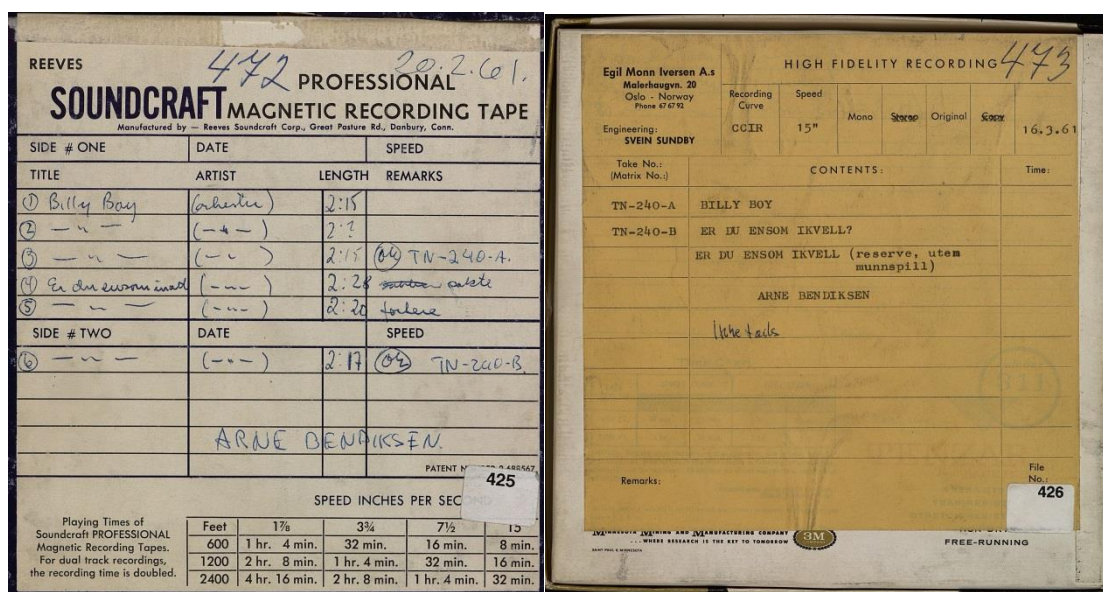 REEVES
472
20.2.61.
PROFESSIONAL
SOUNDCRAFT MAGNETIC RECORDING TAPE
Manufactured by — Reeves Soundcraft Corp., Great Pasture Rd., Danbury, Conn.
SIDE # ONE DATE SPEED
TITLE ARTIST LENGTH REMARKS
① Billy Boy (orkester) 2:15
② — " — (— " —) 2:?
③ — " — (— " —) 2:15 (OK) TN-240-A.
④ Er du ensom 2:28
⑤ — " — (— " —) 2:20
SIDE # TWO DATE SPEED
⑥ — " — (— " —) 2:17 (OK) TN-240-B.
ARNE BENDIKSEN.
PATENT
425
SPEED INCHES PER
Playing Times of
Soundcraft PROFESSIONAL
Magnetic Recording Tapes.
For dual track recordings,
the recording time is doubled.
Feet 1⅞ 3¾ 7½ 15
600 1 hr. 4 min. 32 min. 16 min. 8 min.
1200 2 hr. 8 min. 1 hr. 4 min. 32 min. 16 min.
2400 4 hr. 16 min. 2 hr. 8 min. 1 hr. 4 min. 32 min.
Egil Monn Iversen A.s
Malerhaugvn. 20
Oslo - Norway
Phone 67 67 92
Engineering:
SVEIN SUNDBY
HIGH FIDELITY RECORDING
473
Recording Curve Speed Mono Stereo Original Copy
CCIR 15" 16.3.61
Take No.:
(Matrix No.:)
CONTENTS:
Time:
TN-240-A BILLY BOY
TN-240-B ER DU ENSOM IKVELL?
ER DU ENSOM IKVELL (reserve, utem
munnspill)
ARNE BENDIKSEN
Ikke tails
811
Remarks:
File
No.:
426
MINNESOTA MINING AND MANUFACTURING COMPANY
...WHERE RESEARCH IS THE KEY TO TOMORROW
3M
FREE-RUNNING